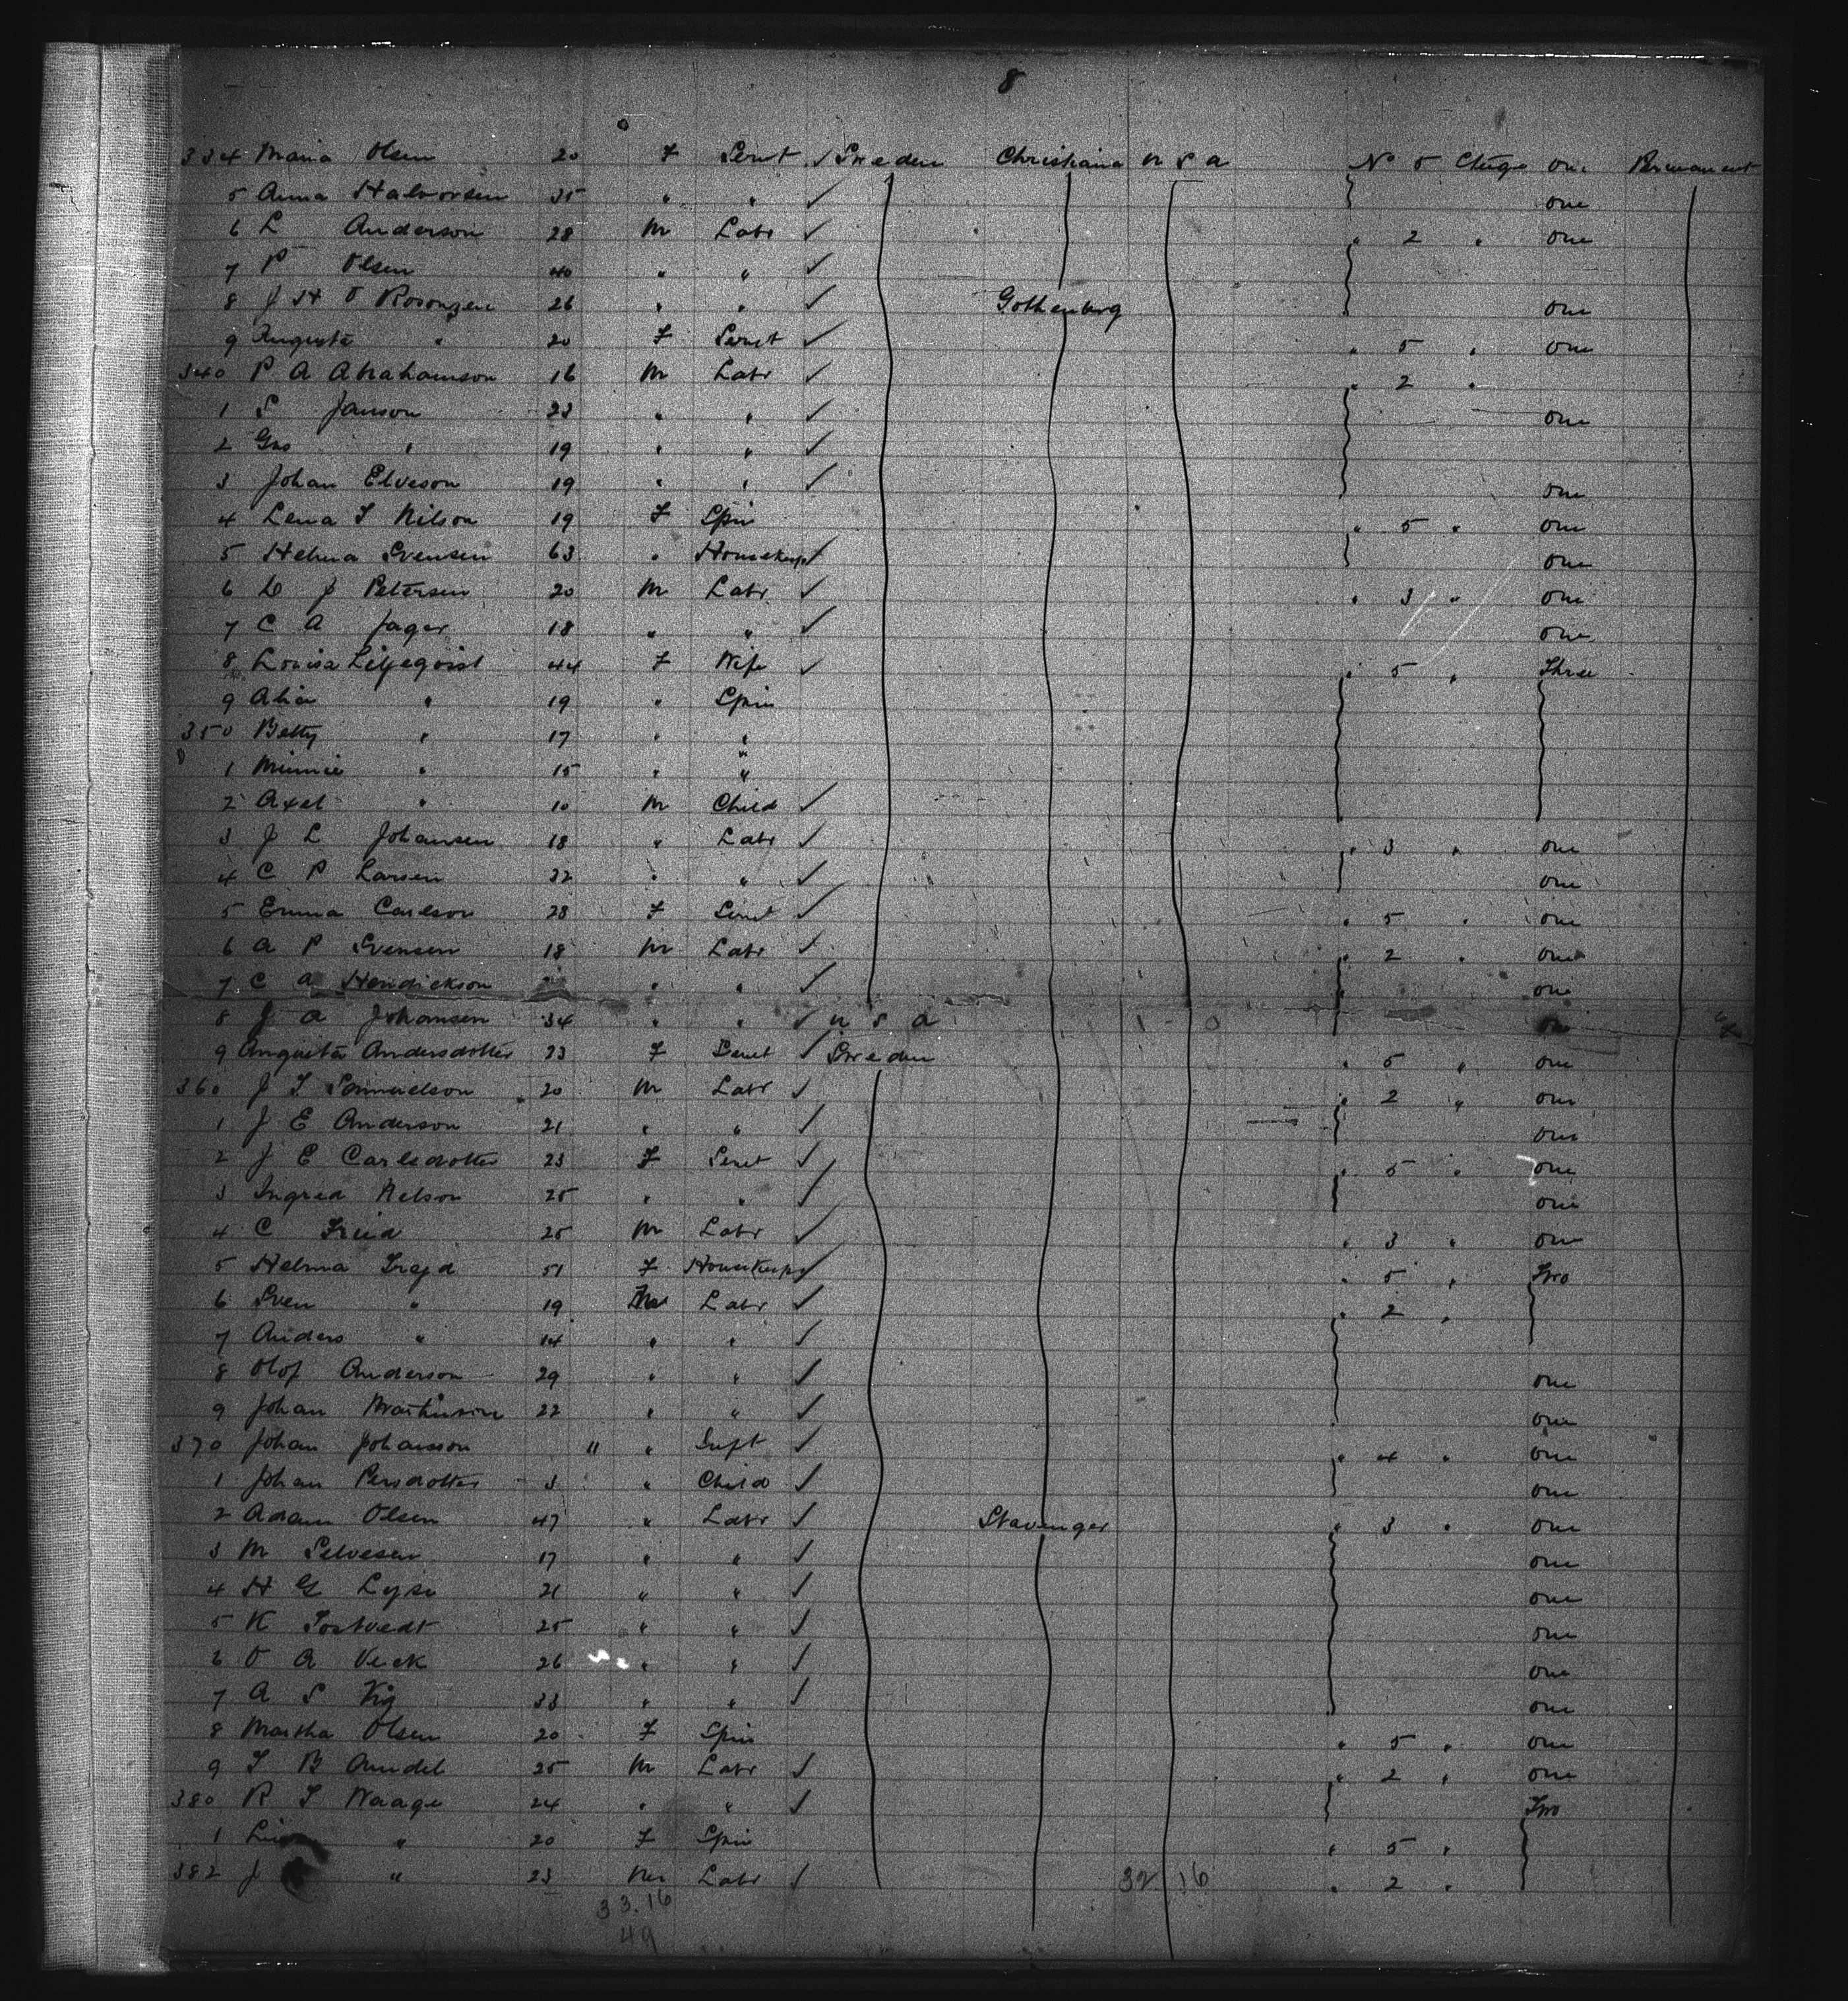 8
334 Maria Olsen 20 F Servt ✓ Sweden Christiana U S A No 5 Stege One Permanent
5 Anna Halvorsen 35 " " ✓ One
6 L Anderson 28 M Labr ✓ " 2 " One
7 P Olsen 40 " " ✓
8 J H O 26 " " ✓ Gothenberg One
9 Augusta " 20 F Servt ✓ " 5 " One
340 P A Abrahamson 16 M Labr ✓ " 2 "
1 S Janson 23 " " ✓ One
2 Gus " 19 " " ✓
3 Johan Elveson 19 " " ✓ One
4 Lena S Nilson 19 F Spin " 5 " One
5 Helma Svensen 63 " Housekeepr ✓ One
6 J Petersen 20 M Labr ✓ " 3 " One
7 C A Jager 18 " " ✓ One
8 Louisa Liljeqvist 44 F Wife ✓ " 5 " Three
9 " 19 " Spin
350 Betty " 17 " "
1 Minnie " 15 " "
2 Axel " 10 M Child ✓
3 J L Johansen 18 " Labr ✓ " 3 " One
4 C P Larsen 22 " " ✓ One
5 Emma Carlson 28 F Servt ✓ " 5 " One
6 A P Svensen 18 M Labr ✓ " 2 " One
7 C A Hendickson " " ✓ One
8 J A Johansen 34 " " ✓ U S A
9 Augusta Andersdotter 23 F Servt ✓ Sweden " 5 " One
360 J S Samuelson 20 M Labr ✓ " 2 " One
1 J E Anderson 21 " " ✓ One
2 J C Carlsdotter 23 F Servt ✓ " 5 " One
3 Ingred Nelson 25 " " ✓ One
4 C 25 M Labr ✓ " 3 " One
5 Helma 51 F Housekeepr ✓ " 5 " Two
6 Sven " 19 M Labr ✓ " 2 "
7 Anders " 14 " " ✓
8 Olof Anderson 29 " " ✓ One
9 Johan 22 " " ✓ One
370 Johan Johansson 11 " Inft ✓ " 4 " One
1 Johan Persdotter 3 " Child ✓ One
2 Adam Olsen 47 " Labr ✓ Stavenger " 3 " One
3 M 17 " " ✓ One
4 H G 21 " " ✓ One
5 K 25 " " ✓ One
6 O A 26 " " ✓ One
7 A S 33 " " ✓ One
8 Martha Olsen 20 F Spin " 5 " One
9 S B 25 M Labr ✓ " 2 " One
380 R S Waage 24 " " ✓ Two
1 " 20 F Spin " 5 "
382 J " 23 M Labr ✓ 32 16 " 2 "
33.16
49